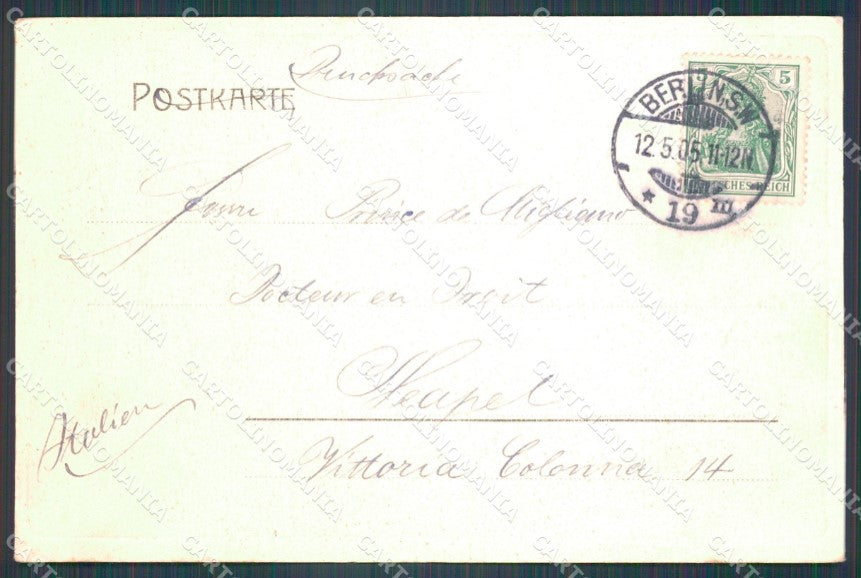 Drucksache
POSTKARTE
5
BERLIN.S.W.
12.5.05.11-12N.
* 19 m
DEUTSCHES REICH
Prince de Migliano
Docteur en Droit
Neapel
Italien
Vittoria Colonna 14
CARTOLINOMANIA